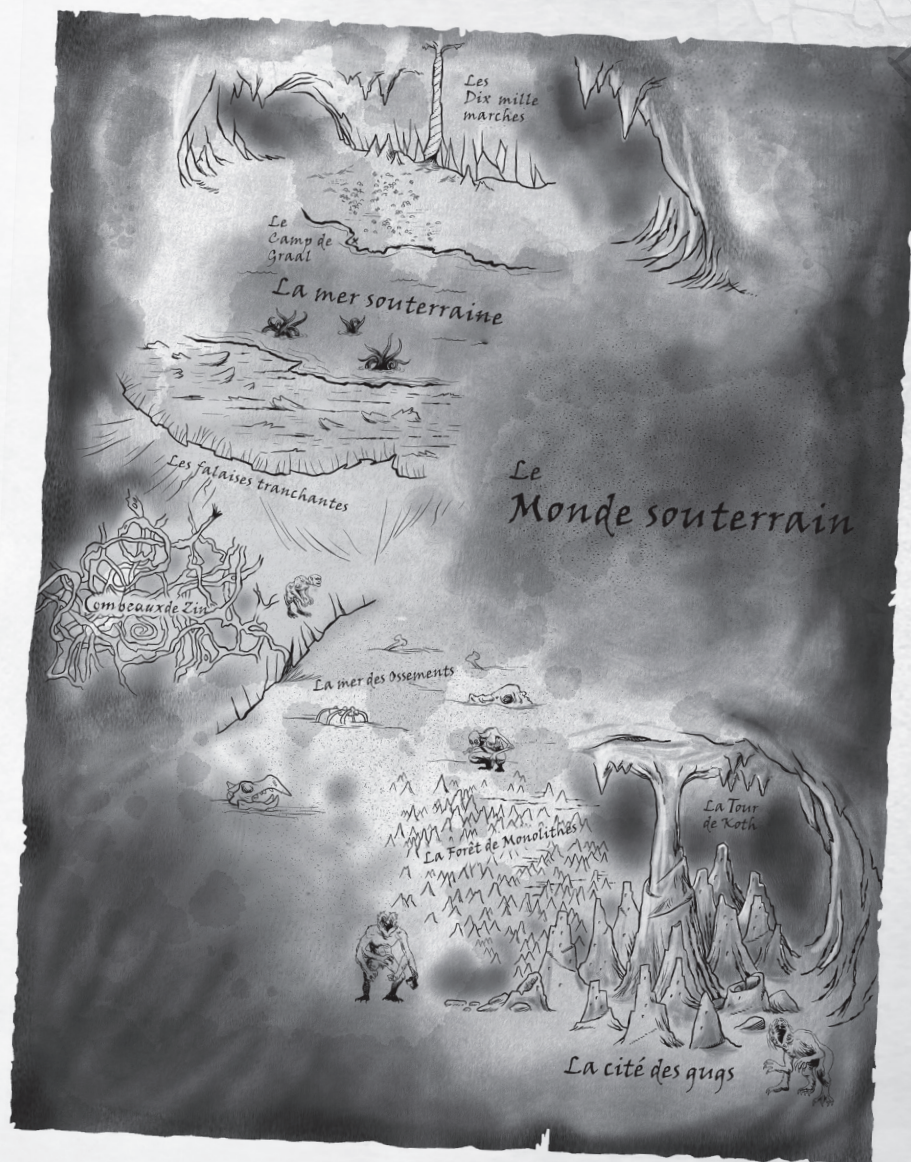 Les
Dix mille
marches
Le
Camp de
Graal
La mer souterraine
Les falaises tranchantes
Le
Monde souterrain
Tombeaux de Zin
La mer des Ossements
La Tour
de Koth
La Forêt de Monolithes
La cité des gugs